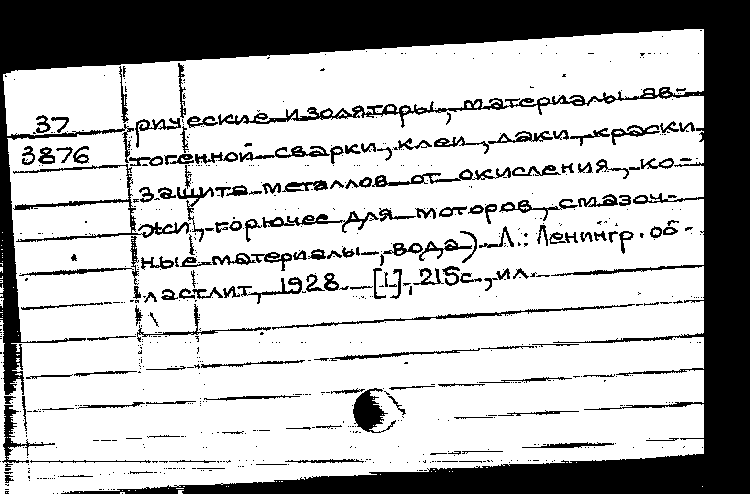 37 рические изоляторы, материалы ав-
3876 тогенной сварки, клеи, лаки, краски,
защита металлов от окисления, ко-
жи, горючее для моторов, смазоч-
ные материалы, вода). Л.: Ленингр. об-
ластлит, 1928. [1], 215с., ил.